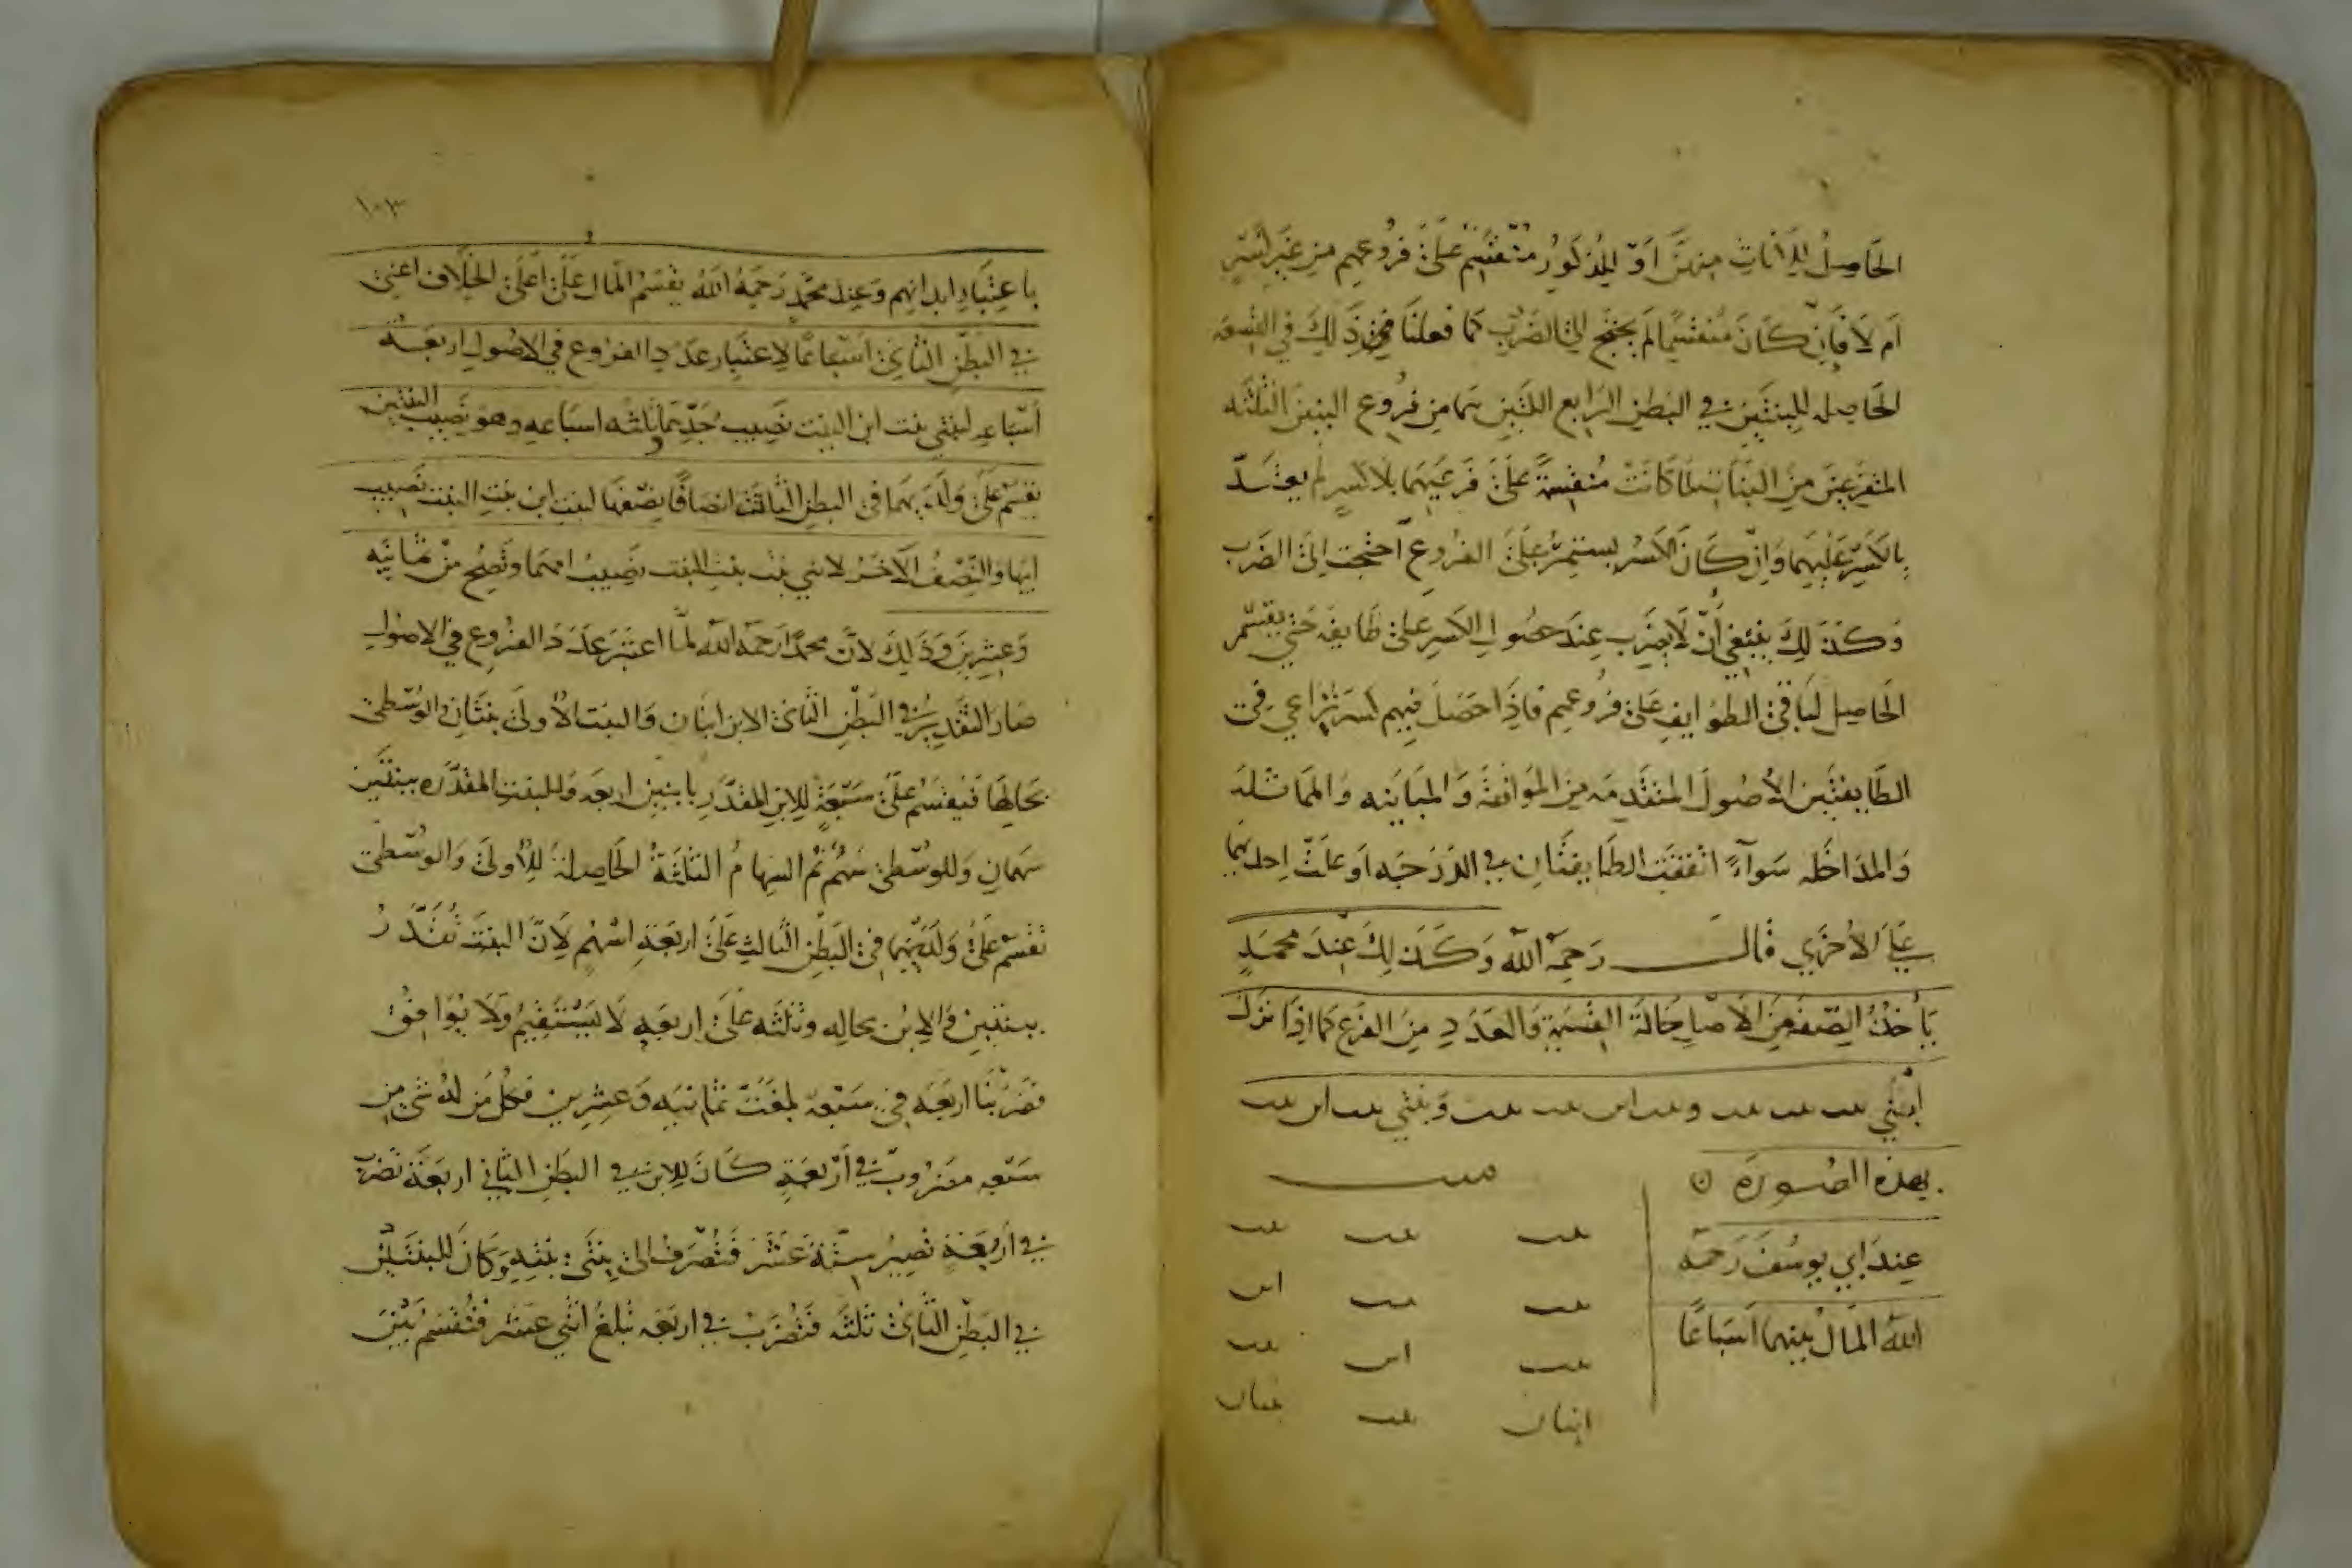 الحَاصِلُ لِلاِنَاثِ مِنهنَّ اَوّ لِلذُّكُورِ مُنْقَسِمٌ عَلىَ فرُوعهم من غَيرِ كَسْرٍ
اَم لاَ فَاِنْ كَانَ مُنقسِمًا لم يحتج الىَ الضَرْبِ كما فعلنَا نحن ذَلِكَ في القسمَه
الحَاصِله للبِنتَينِ في البَطنِ الرَابع اللتَينِ هما من فرُوع البنتين الثلثه
المتفرعِينَ منَ البنَات لمَا كَانَت مُنقسِمَةً عَلىَ فَرعَيهَما بلاَ كسرٍ لم يعتَدّ
بِالكَسْرِ عَلَيهمَا وَاِنْ كَانَ الكَسْرُ يستمِرُ عَلىَ الفرُوعِ احتجت اِلىَ الضَرب
وَكذَلِكَ ينبغِي اَنْ لاَ يضرِب عِندَ حصُولِ الكَسرِ علىَ طَايفه حَتى يقسّم
الحَاصِل لبَاقي الطوَايفِ عَلىَ فرُوعهم فَاِذَا حَصَلَ فيهم كسرٌ تراعي في
الطَايفتَينِ الاُصُولَ المتقَدِّمَه مِنَ الموَافقَةَ وَالمبَاينه وَالممَاثلَه
وَالمدَاخَله سَوآءً اتفقت الطَايفتَانِ في الدَرَجَه اَو عَلَتْ اِحدَيهما
عَلىَ الاُخرَي قَالَ رَحمِهَ الله وَكَذَلِكَ عِندَ محمدٍ
يَأخُذُ الصِّفَةَ مِنَ الاَصْلِ حَالَةَ القسمَةِ وَالعَدَدِ مِنَ الفرَعِ كَما اِذَا تَرَكَ
اِبْنَي بنت بنت بنت وبنت ابن بنت بنت وَبنتَي بنت ابن بنت
بهذه الصُورَه ٥
عِندَ اَبي يوسُفَ رَحمَه
اللهُ المَالُ بَينهما اَسبَاعًا
ميت
بنت بنت بنت
بنت بنت ابن
بنت ابن بنت
ابنان بنت بنتان
١٠٣
باعتِبَارِ ابدَانِهم وَعِندَ محمّدٍ رَحمِهَ اللهُ يقسَمُ المَالُ عَلىَ اَعلىَ الخلاَف اعني
في البَطْنِ الثَاني اَسبَاعًا لاِعتِبَارِ عَدَدِ الفرُوع في الاصُولِ اربَعَة
اَسْبَاعِه لبنتي بنت ابن البنت نَصِيب جَدِّهما وثلثه اسبَاعِه وهو نَصيب البنتين
يقسم عَلىَ وَلَدَيهمَا في البَطنِ الثالث انصَافًا نِصْفهَا لبنت ابن بنتِ البنت نَصِيب
ابيهَا وَالنِّصْفُ الاَخَرُ لابني بنت بنتِ البنت نصِيبُ امهمَا وَتصِحُ مِنْ ثمانيه
وَعِشرِينَ وَذَلِكَ لاَنّ محمدًا رَحمَه الله لمّا اعتبرَ عَدَدَ الفرُوعِ في الاصُولِ
صَارَ التقدِيرُ في البَطْنِ الثَاني الابن ابنَان وَالبنت الاُولىَ بنتَانِ وَالوُسْطى
بحَالِهَا فَيقسَمُ عَلىَ سَبْعَةٍ لِلابنِ المقدَّرِ بابنينِ اربعَه وَللبنتِ المقدَّره ببنتَين
سَهمَانِ وَللوُسْطىَ سَهْمٌ ثم السِهَامُ الثلثَةُ الحَاصِلَةُ لِلاُولىَ وَالوسْطى
تقسم عَلىَ وَلَدَيهمَا في البَطْنِ الثالثِ عَلىَ اربَعَةِ اسْهُم لاَنّ البنتَ تُقَدَّرُ
ببنتينِ وَالابن بحالِه وثلثَه عَلىَ اربَعَهٍ لاَ يَسْتَقِيمُ وَلاَ يوَافِقُ
فضَربْنَا اربَعَه في سَبْعَه بلغَتْ ثمانيَه وَعِشرِين فكلُ مَن لهُ شَيْ مِن
سَبْعه مضرُوبٌ في اَرْبعَةٍ كَانَ للابن في البَطنِ الثَاني اربَعَة تضرَب
في اَربَعَةٍ تصِيرُ سِتّةَ عَشَرَ فَتُصْرَفُ اِلىَ بنتَي بنتِهِ وَكَانَ للبنتَينِ
في البَطْنِ الثَاني ثلثَه فَتُضرَبْ في اربَعَه تبلغُ اثني عشر فتُقسَمُ بَيْنَ